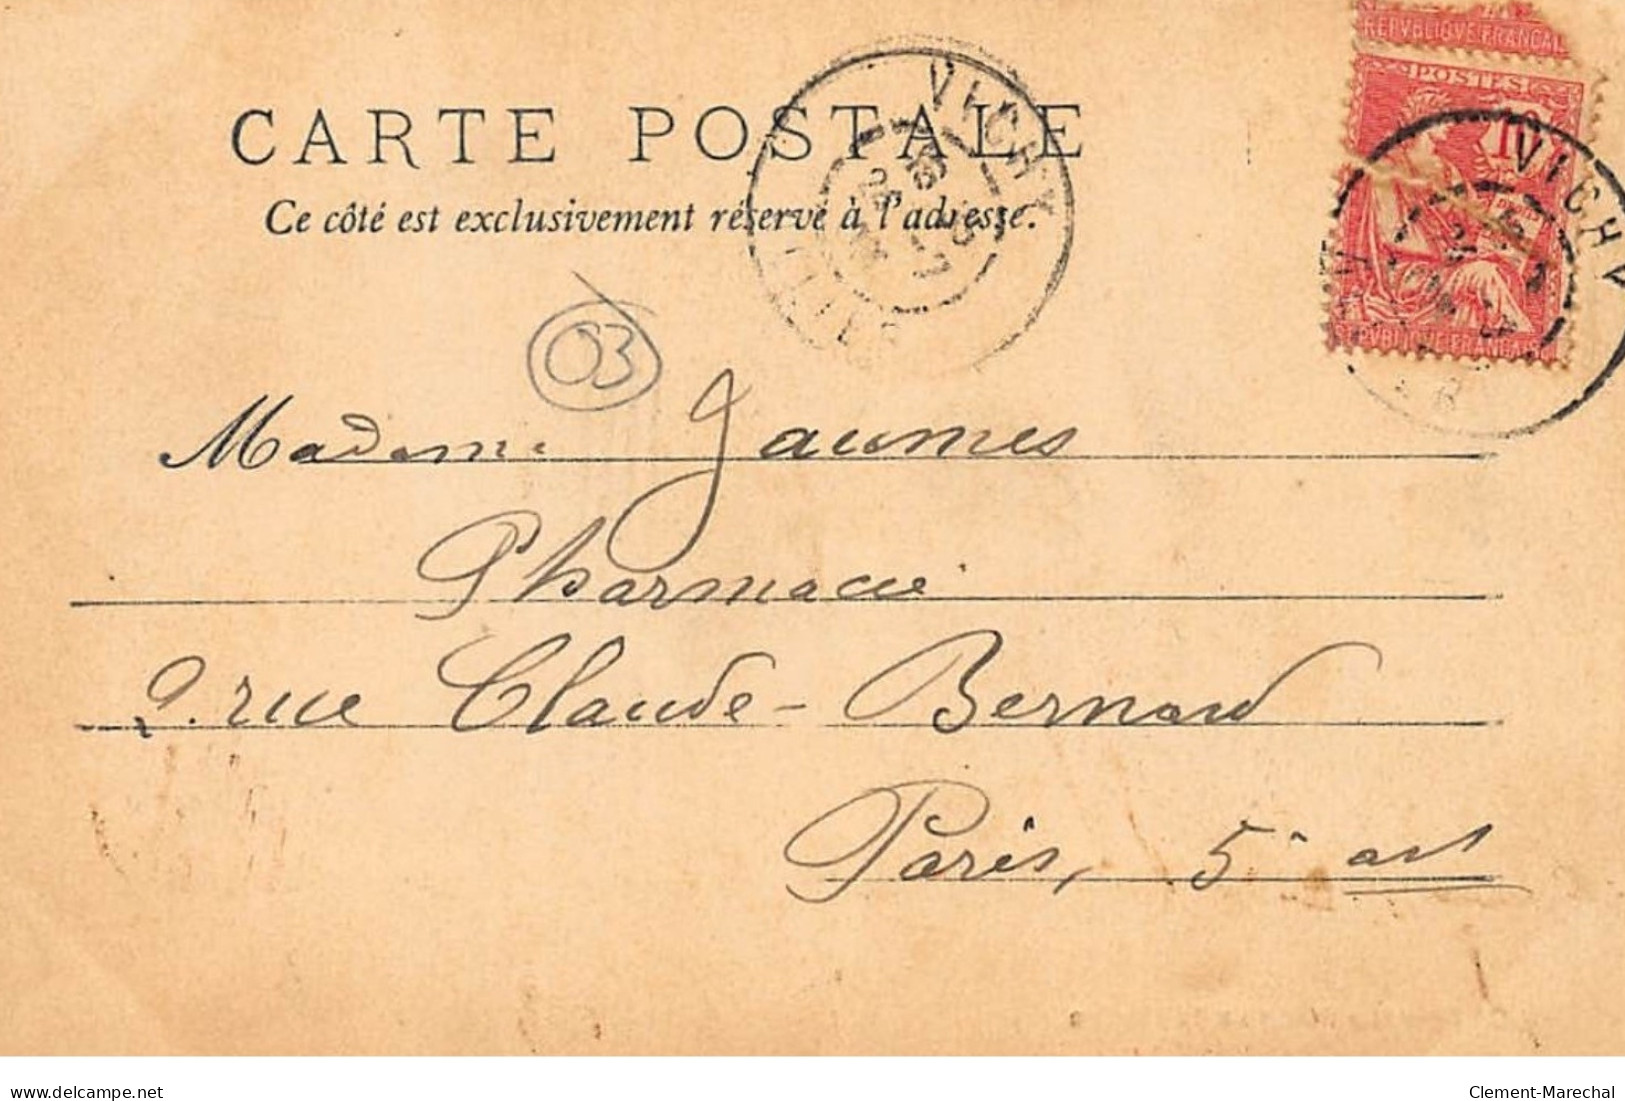 RÉPUBLIQUE FRANÇAI
POSTES
10
VICHY
VICHY
ALLIER
CARTE POSTALE
Ce côté est exclusivement réservé à l'adresse.
03
Madame Jaumes
Pharmacie
9. rue Claude-Bernard
Paris, 5e arrt
delcampe.net
Clement-Marechal